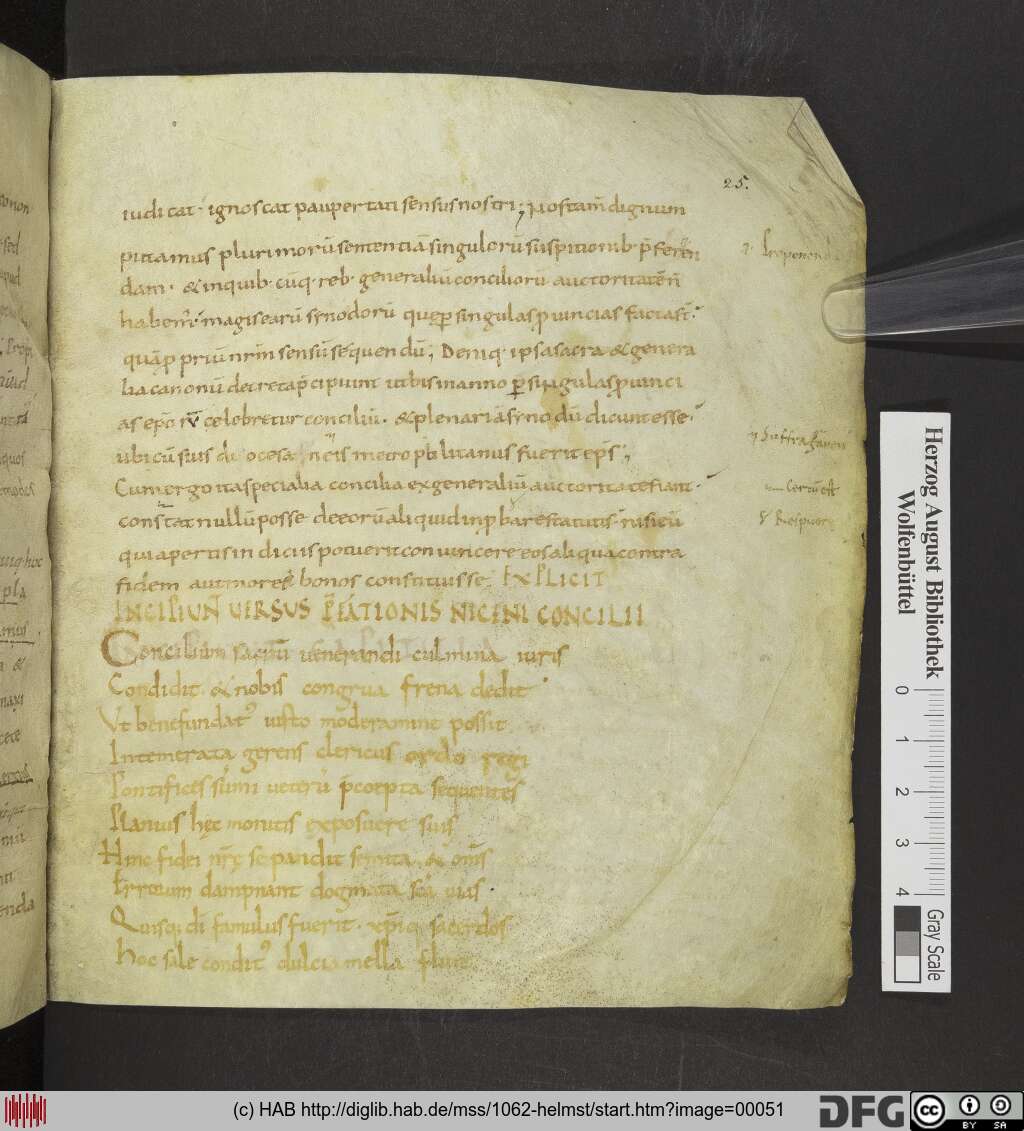 25.
iudicat· ignoscat paupertati sensus nostri; Nos tam̄ dignum
putamus plurimorū sententiā singulorū suspitionib· p̄feren
dam· & inquib· cūq· reb· generaliū conciliorū auctoritatē ñ
habem᷒· magis earū synodorū quę ꝑ singulas ꝓuincias factae sr̄·
quā ꝓpriū nr̄m sensū sequendū; Deniq· ipsa sacra & genera
lia canonū decreta p̄cipiunt ut bis in anno ꝑ singulas ꝓuinci
as epōrū celebretur conciliū· & plenariā synodū dicunt esse·
ubicū suis metropolitanus fuerit eps̄;
Cum ergo ita specialia concilia ex generaliū auctoritate fiant·
constat nullū posse de eorū aliquid inpbare statutis· nisi eū
qui apertis indiciis potuerit convincere eos aliqua contra
fidem aut mores bonos constituisse. EXPLICIT
INCIPIUN̄ UERSUS P̄FATIONIS NICENI CONCILII
Concilium sacrū uenerandi culmina iuris
Condidit & nobis congrua frena dedit·
Ut bene fundat᷒ iusto moderamine possit
Intemerata gerens clericus ordo regi
Pontifices sūmi ueterū p̄cepta sequentes
Planius hęc monitis exposuere suis
Hinc fidei nr̄ę se pandit semita & om̄s
Errorum dampnant dogmata scā uias
Quisq· dī famulus fuerit· xp̄iq· sacerdos
Hoc sale condit᷒ dulcia mella fluit
Herzog August Bibliothek
Wolfenbüttel
0 1 2 3 4
Gray Scale
(c) HAB http://diglib.hab.de/mss/1062-helmst/start.htm?image=00051
DFG
cc BY SA